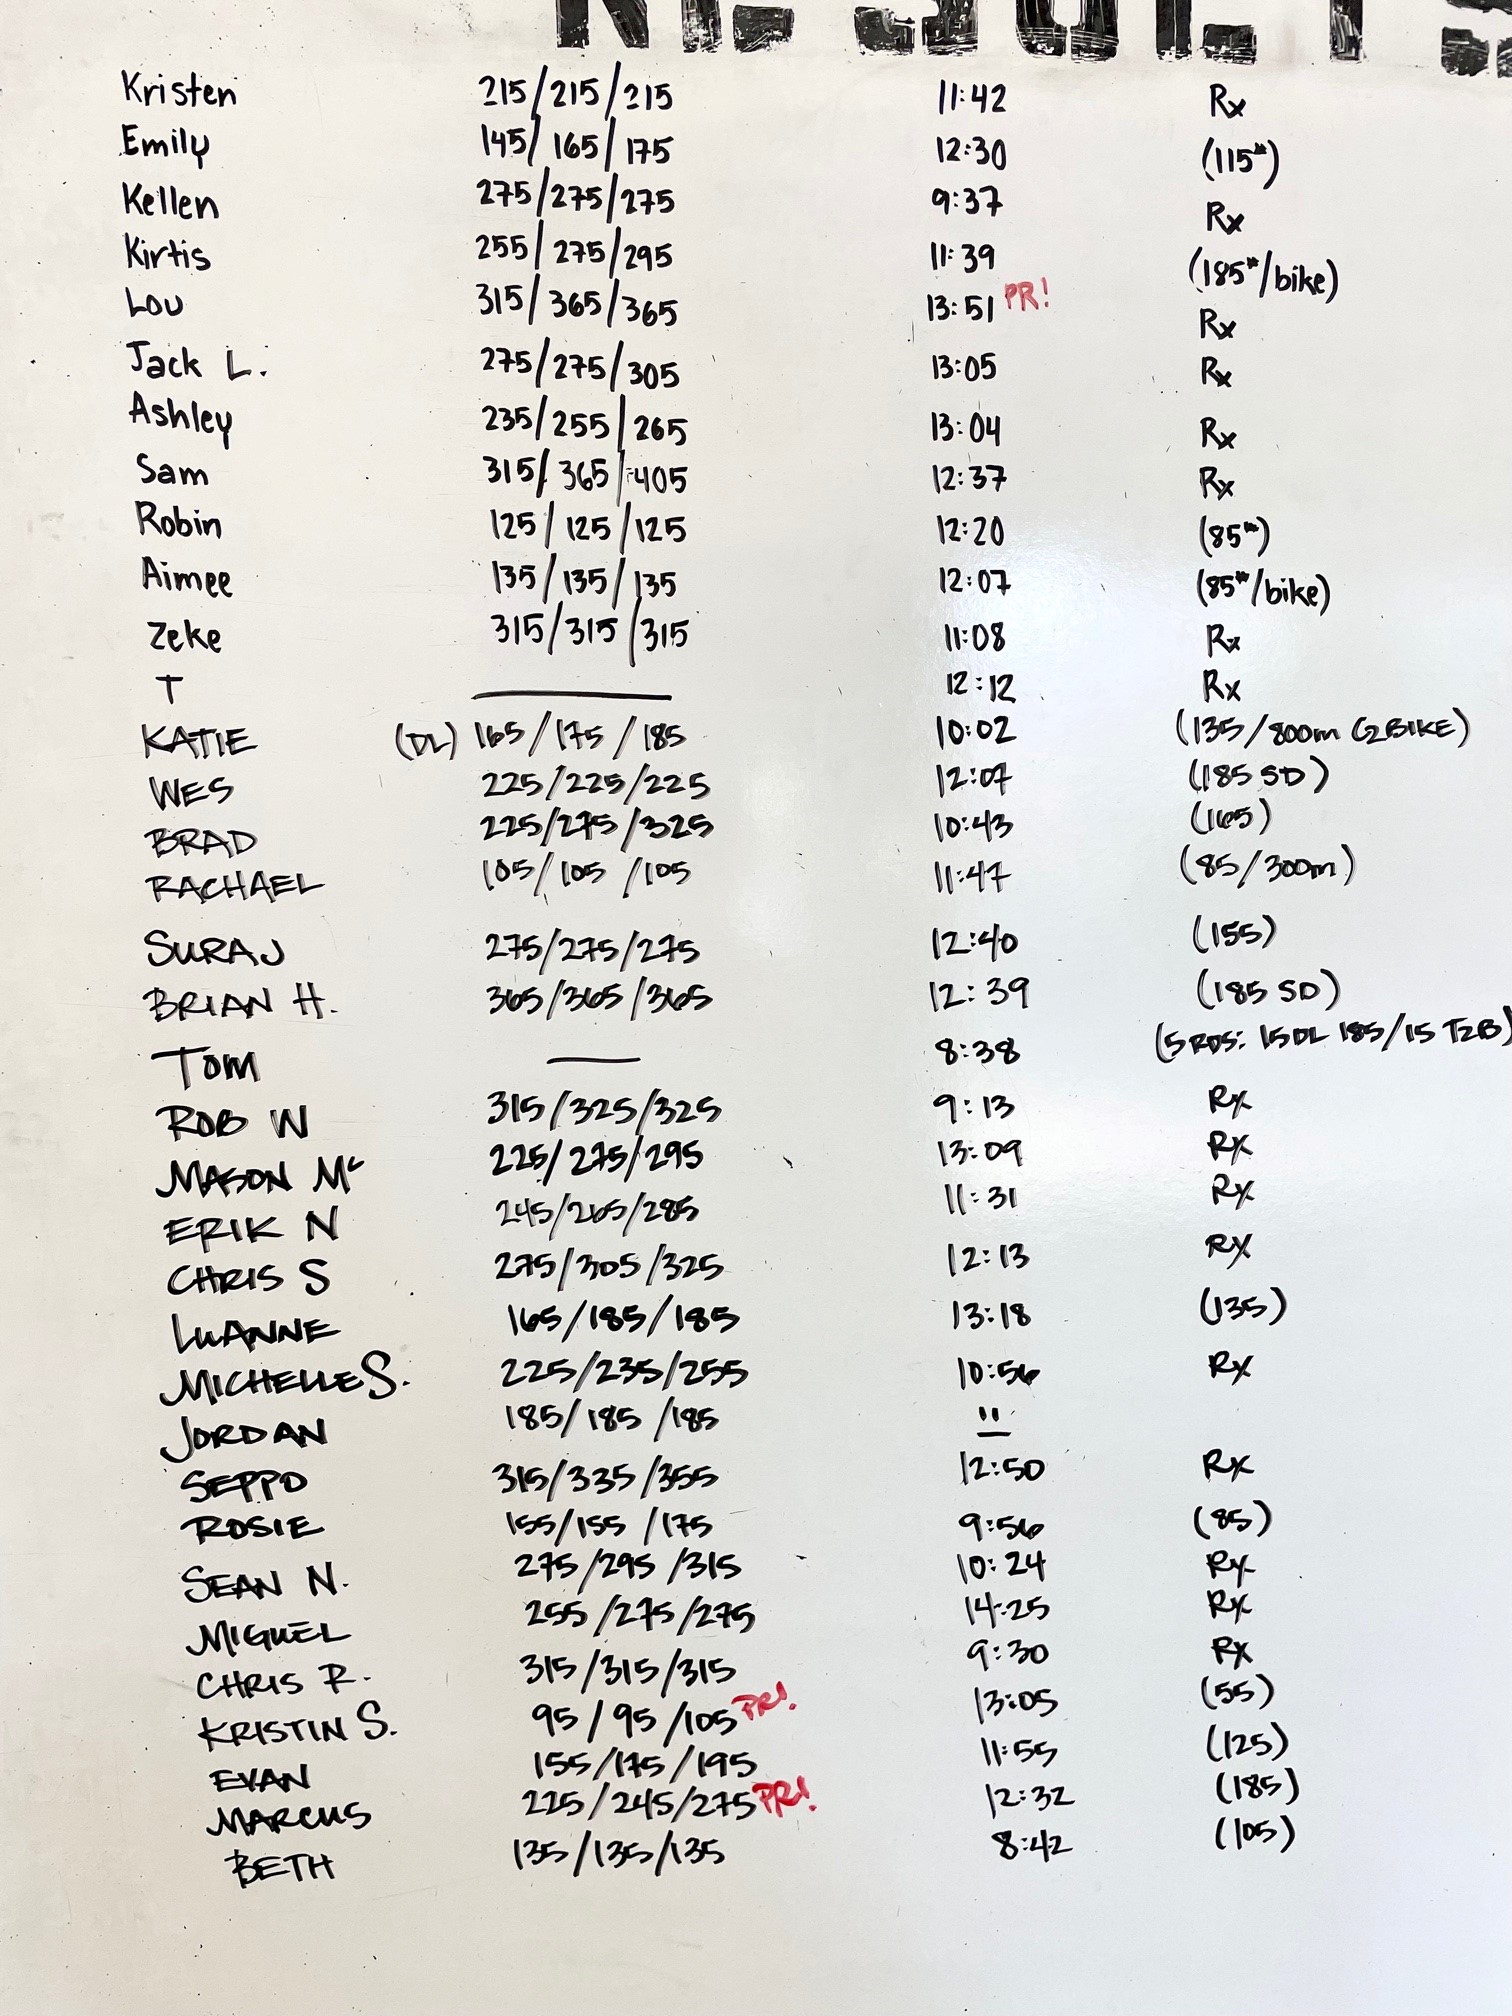 RESULTS
Kristen 215/215/215 11:42 Rx
Emily 145/165/175 12:30 (115#)
Kellen 275/275/275 9:37 Rx
Kirtis 255/275/295 11:39 (185#/bike)
Lou 315/365/365 13:51 PR! Rx
Jack L. 275/275/305 13:05 Rx
Ashley 235/255/265 13:04 Rx
Sam 315/365/405 12:37 Rx
Robin 125/125/125 12:20 (85#)
Aimee 135/135/135 12:07 (85#/bike)
Zeke 315/315/315 11:08 Rx
T — 12:12 Rx
KATIE (DL) 165/175/185 10:02 (135/800m C2BIKE)
WES 225/225/225 12:07 (185 SD)
BRAD 225/275/325 10:43 (165)
RACHAEL 105/105/105 11:47 (85/300m)
SURAJ 275/275/275 12:40 (155)
BRIAN H. 365/365/365 12:39 (185 SD)
TOM — 8:38 (5 RDS: 15 DL 185/15 T2B)
ROB W 315/325/325 9:13 Rx
MASON Mc 225/275/295 13:09 Rx
ERIK N 245/265/285 11:31 Rx
CHRIS S 275/305/325 12:13 RX
LUANNE 165/185/185 13:18 (135)
MICHELLE S. 225/235/255 10:56 Rx
JORDAN 185/185/185 "
SEPPO 315/335/355 12:50 Rx
ROSIE 155/155/175 9:56 (85)
SEAN N. 275/295/315 10:24 Rx
MIGUEL 255/275/275 14:25 Rx
CHRIS R. 315/315/315 9:30 Rx
KRISTIN S. 95/95/105 PR! 13:05 (55)
EVAN 155/175/195 11:55 (125)
MARCUS 225/245/275 PR! 12:32 (185)
BETH 135/135/135 8:42 (105)